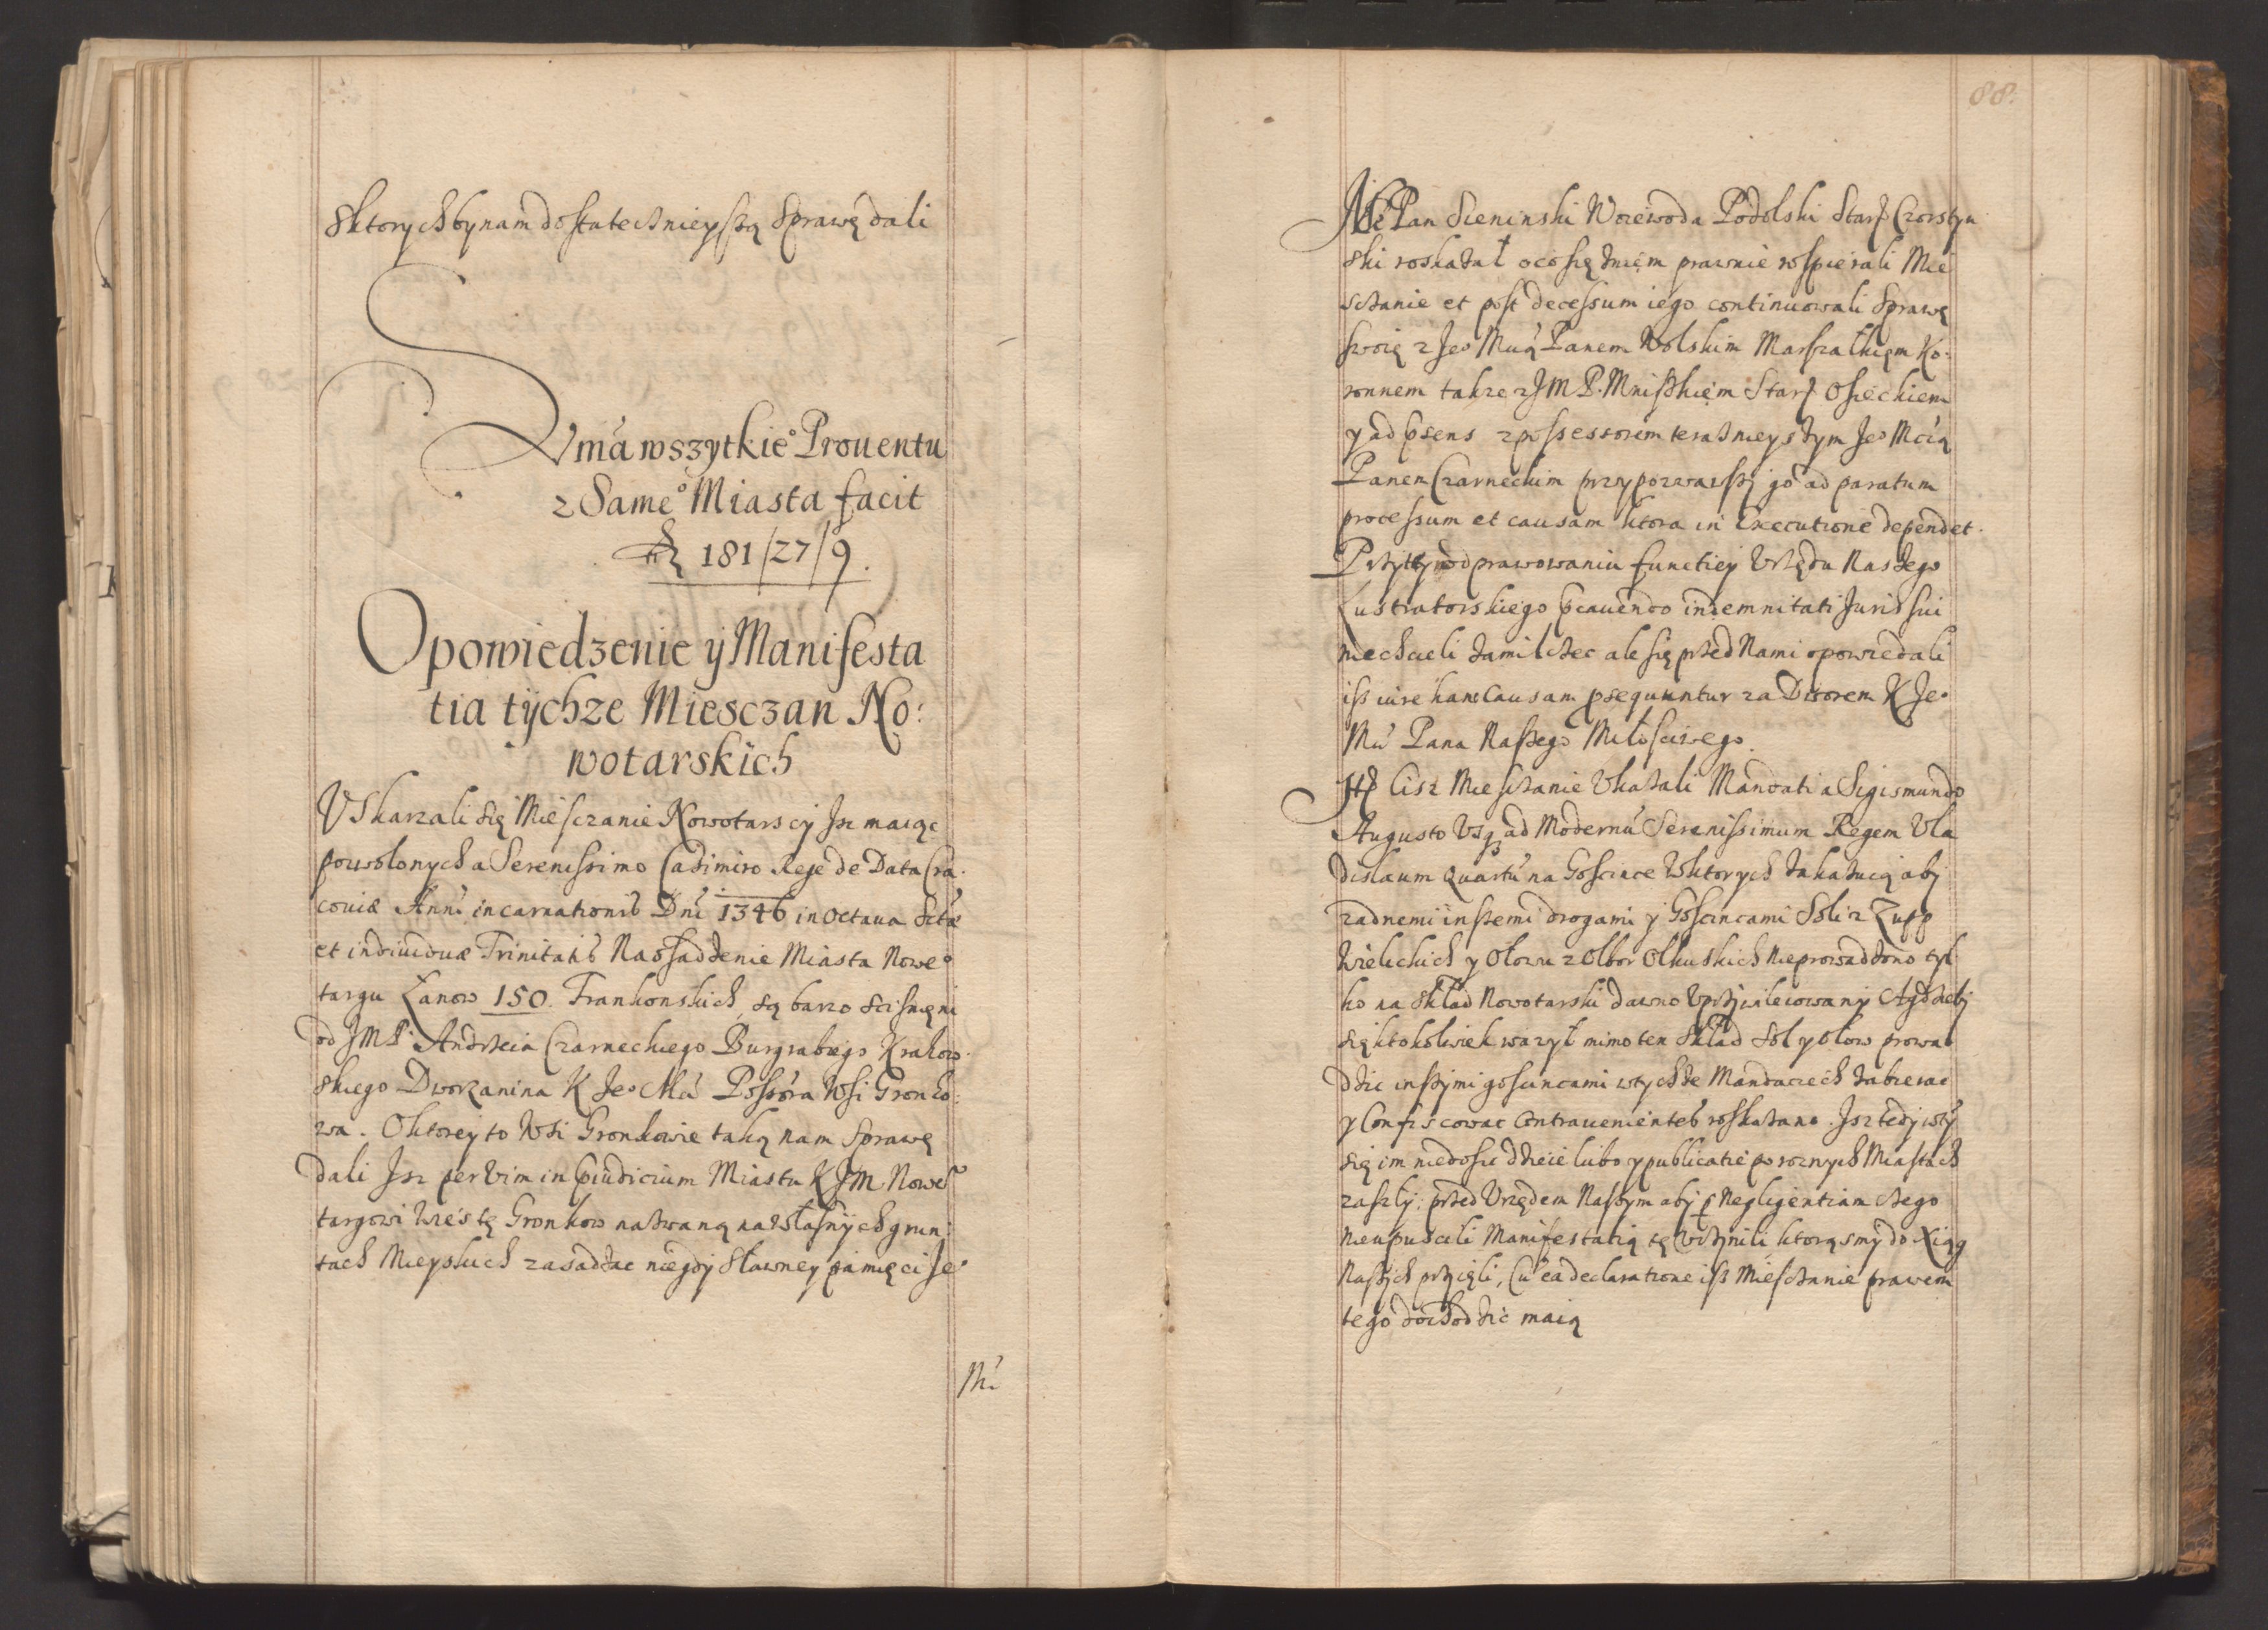 Sktorych by nam dostatecznieyszą Sprawę dali
Sumá wszytkie° Prouentu
z Same° Miasta facit
181/27/9.
Opowiedzenie ÿ Manifesta
tia tÿchze Miesczan No:
wotarskich
Vskarzali się Miesczanie Nowotarscy Isz maiąc
pozwolonych a Serenissimo Casimiro Rege de Data Cra
couiæ Anno incarnationis Dni 1346 in octaua Sctæ
et indiuiduæ Trinitatis Na osadzenie Miasta Nowe°
targu Łanow 150. Frankonskich, są barzo scisnięni
od JMP Andrzeia Czarneckiego Burgrabiego Krakow
skiego Dworzanina K Je° Mći Possora Wsi Gronko:
wa. O ktorey to Wsi Gronkowie taką nam Sprawę
dali Isz per Vim in p̱iudicium Miastu KJM Nowe°
targowi Wieś tę Gronkow nazwaną na własnÿch grun:
tach Mieyskich zasadzac niegdy Sławney pamięci Je°
Mć.
88.
JMć Pan Sieninski Woiewoda Podolski Star. Czorstyn
ski roskazał o co się z niem prawnie rospierali Mie
sczanie et post decessum iego continuowali Sprawę
swoię z Je° Mcią Panem Wolskim Marszałkięm Ko:
ronnem takze z JM P. Mniszkięm Star. Osieckiem
y ad p̱sens z possessorem terazneyszym Je° Mcią
Panem Czarneckim przypozwawszy go ad paratum
processum et causam ktora in Executione dependet.
Przy tym odprawowaniu functiey Vrzędu Naszego
Lustratorskiego p̱cauendo indemnitati Juris sui
niechcieli zamilczec ale się przed Nami opowiedali
isz iure hanc Causam ꝓsequuntur za Dworem K Je°
Mći Pana Naszego Miłosciwego.
Itꝑ Cisz Miesczanie Vkazali Mandati a Sigismundo
Augusto Vsq ad Modernu Serenissimum Regem Vla
dislaum Quartu na Goscince W ktorych zakazuią aby
zadnemi inszemi drogami y Goscincami Soli z Zupp
Wielickich y Ołowu z Olbor Olkuskich nieprowadzono tyl
ko na Skład Nowotarski dawno Vprzÿwileiowany A gdzieby
się ktokolwiek wazył mimo ten Skład Sol y ołow prowa
dzic inszÿmi goscincami w tych ze Mandaciech zabierac
y Confiscowac Contrauenientes roskazano. Isz tedy w tÿ
się im niedosic dzieie lubo y publicatie po roznych Miastach
zaszły: przed Vrzędem Naszym aby ꝑ Negligentiam czego
nieupuscili Manifestatią tę Vczÿnili ktorą smy do Xiąg
Naszych przyięli, Cu ea declaratione isz Miesczanie prawem
tego dochodzic maią